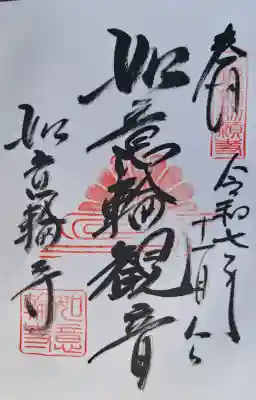 奉拝
令和七年
十一月八日
如意輪観音
如意輪寺
如意
輪寺